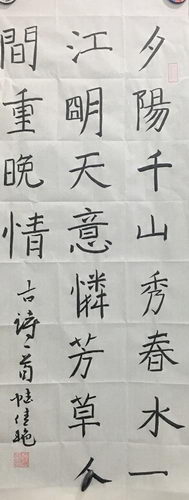 夕陽千山秀春水一
江明天意憐芳草人
間重晚情
古詩首